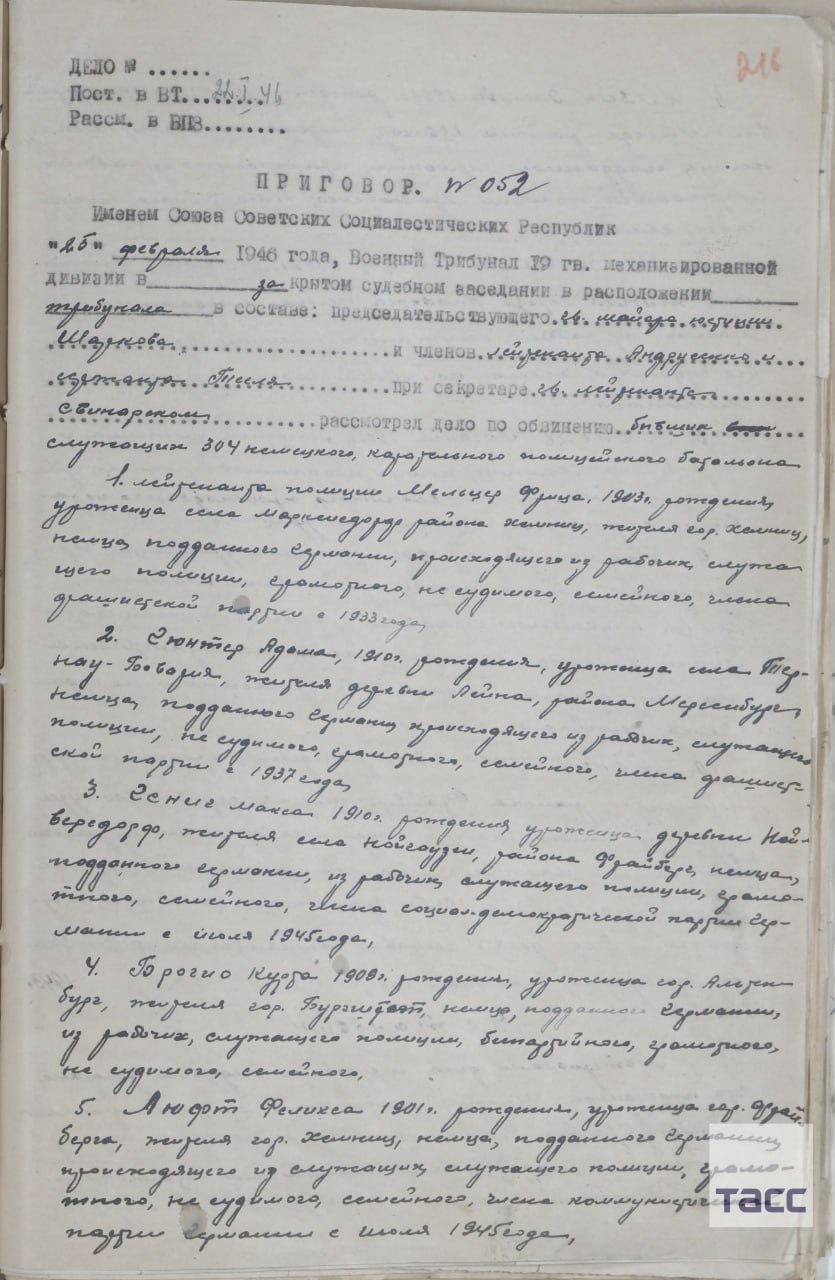 216
ДЕЛО № ......
Пост. в ВТ...22.I.46
Рассм. в ВПЗ........
ПРИГОВОР. № 052
Именем Союза Советских Социалестических Республик
"25" февраля 1946 года, Военный Трибунал 19 гв. механизированной
дивизии в ________ закрытом судебном заседании в расположении ______
трибунала в составе: председательствующего гв. майора юстиции
Шаркова, ............ и членов лейтенанта Андрусенко и
сержанта Теля ............ при секретаре гв. лейтенанте
Свинарском ............ рассмотрел дело по обвинению бывших
служащих 304 немецкого, карательного полицейского батальона
1. лейтенанта полиции Мельцер Фрица, 1903г. рождения,
уроженца села района Хемниц, жителя гор. Хемниц,
немца, подданного Германии, происходящего из рабочих, служа
щего полиции, грамотного, не судимого, семейного, члена
фашистской партии с 1933 года,
2. Гюнтер Адама, 1910г. рождения, уроженца села Тер-
нау-Бовария, жителя деревни Лейна, района Мерсибург,
немца, подданного Германии, происходящего из рабочих, служащего
полиции, не судимого, грамотного, семейного, члена фашист-
ской партии с 1937 года,
3. Гениг Макса 1910г. рождения, уроженца деревни Ной-
вередорф, жителя села Нойгаузен, района Фрайберг, немца,
подданного Германии, из рабочих, служащего полиции, грамо-
тного, семейного, члена социал-демократической партии Гер-
мании с июля 1945 года,
4. Брогио Курта 1908г. рождения, уроженца гор. Альтен
бург, жителя гор. Бургштат, немца, подданного Германии,
из рабочих, служащего полиции, беспартийного, грамотного,
не судимого, семейного,
5. Люфт Феликса 1901г. рождения, уроженца гор. Фрай-
берга, жителя гор. Хемниц, немца, подданного Германии,
происходящего из служащих, служащего полиции, грамо-
тного, не судимого, семейного, члена коммунистической
партии Германии с июля 1945 года,
ТАСС